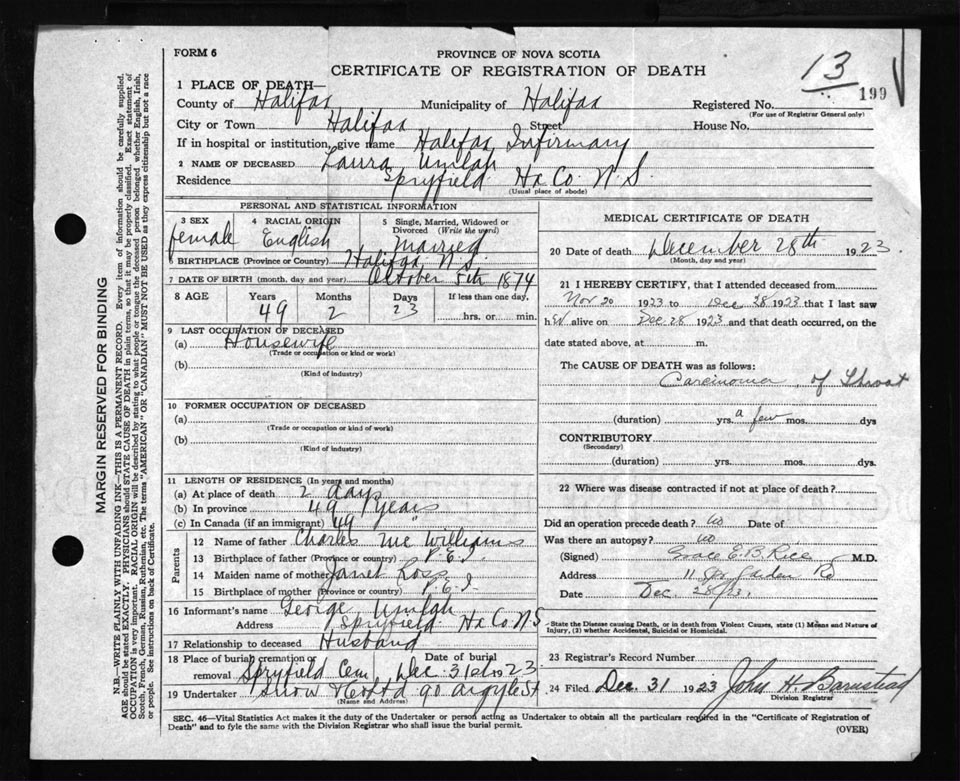 FORM 6
PROVINCE OF NOVA SCOTIA
CERTIFICATE OF REGISTRATION OF DEATH
13
199
1 PLACE OF DEATH—
County of Halifax Municipality of Halifax Registered No.
(For use of Registrar General only)
City or Town Halifax Street House No.
If in hospital or institution, give name Halifax Infirmary
2 NAME OF DECEASED Laura Umlah
Residence Spryfield Hx Co. N.S.
(Usual place of abode)
PERSONAL AND STATISTICAL INFORMATION
3 SEX 4 RACIAL ORIGIN 5 Single, Married, Widowed or Divorced (Write the word)
female English Married
6 BIRTHPLACE (Province or Country) Halifax N.S.
7 DATE OF BIRTH (month, day and year) October 5th 1874
8 AGE Years Months Days If less than one day,
49 2 23 hrs. or min.
9 LAST OCCUPATION OF DECEASED
(a) Housewife
(Trade or occupation or kind of work)
(b)
(Kind of industry)
10 FORMER OCCUPATION OF DECEASED
(a)
(Trade or occupation or kind of work)
(b)
(Kind of industry)
11 LENGTH OF RESIDENCE (In years and months)
(a) At place of death 2 days
(b) In province 49 years
(c) In Canada (if an immigrant) 49 "
Parents
12 Name of father Charles McWilliams
13 Birthplace of father (Province or country) P.E.I.
14 Maiden name of mother Janet Ross
15 Birthplace of mother (Province or country) P.E.I.
16 Informant's name George Umlah
Address Spryfield Hx Co. N S
17 Relationship to deceased Husband
18 Place of burial cremation or removal Spryfield Cem Date of burial Dec 31st 1923
19 Undertaker Snow 90 Argyle St
(Name and Address)
MEDICAL CERTIFICATE OF DEATH
20 Date of death December 28th 1923.
(Month, day and year)
21 I HEREBY CERTIFY, that I attended deceased from
Nov 20 1923 to Dec 28 1923 that I last saw
her alive on Dec. 28 1923 and that death occurred, on
date stated above, at m.
The CAUSE OF DEATH was as follows:
Carcinoma of Throat
(duration) yrs. a few mos. dys
CONTRIBUTORY
(Secondary)
(duration) yrs. mos. dys.
22 Where was disease contracted if not at place of death?
Did an operation precede death? no Date of
Was there an autopsy? no
(Signed) Grace E.B. Rice M.D.
Address 11 Spr Garden Rd
Date Dec. 28/23.
State the Disease causing Death, or in death from Violent Causes, state (1) Means and Nature of
Injury, (2) whether Accidental, Suicidal or Homicidal.
23 Registrar's Record Number
24 Filed Dec. 31 1923 John H. Barnstead
Division Registrar
SEC. 46—Vital Statistics Act makes it the duty of the Undertaker or person acting as Undertaker to obtain all the particulars required in the "Certificate of Registration of
Death" and to fyle the same with the Division Registrar who shall issue the burial permit.
(OVER)
MARGIN RESERVED FOR BINDING
N.B.—WRITE PLAINLY WITH UNFADING INK—THIS IS A PERMANENT RECORD. Every item of information should be carefully supplied.
AGE should be stated EXACTLY. PHYSICIANS should STATE CAUSE OF DEATH in plain terms, so that it may be properly classified. Exact statement of
OCCUPATION is very important. RACIAL ORIGIN will be described by stating to what people or tongue the deceased person belonged whether English, Irish,
Scotch, French, German, Russian, Ruthenian, etc. The terms "AMERICAN" OR "CANADIAN" MUST NOT BE USED as they express citizenship but not a race
or people. See instructions on back of Certificate.